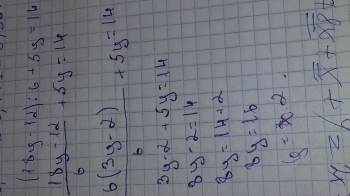 (18y-12):6+5y=14
18y-12/6 +5y=14
6(3y-2)/6 +5y=14
3y-2+5y=14
8y-2=14
8y=14+2
8y=16
y=2.